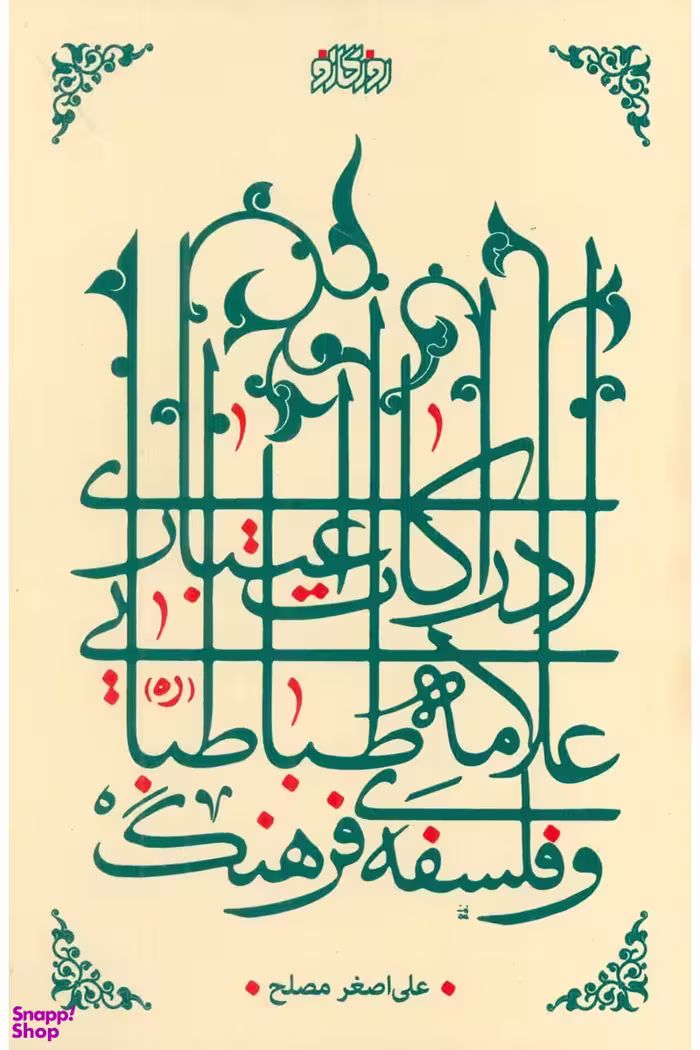 روزگار نو
ادراکات اعتباری
علامه طباطبایی (ره)
و فلسفه‌ی فرهنگ
علی‌اصغر مصلح
Snapp!
Shop